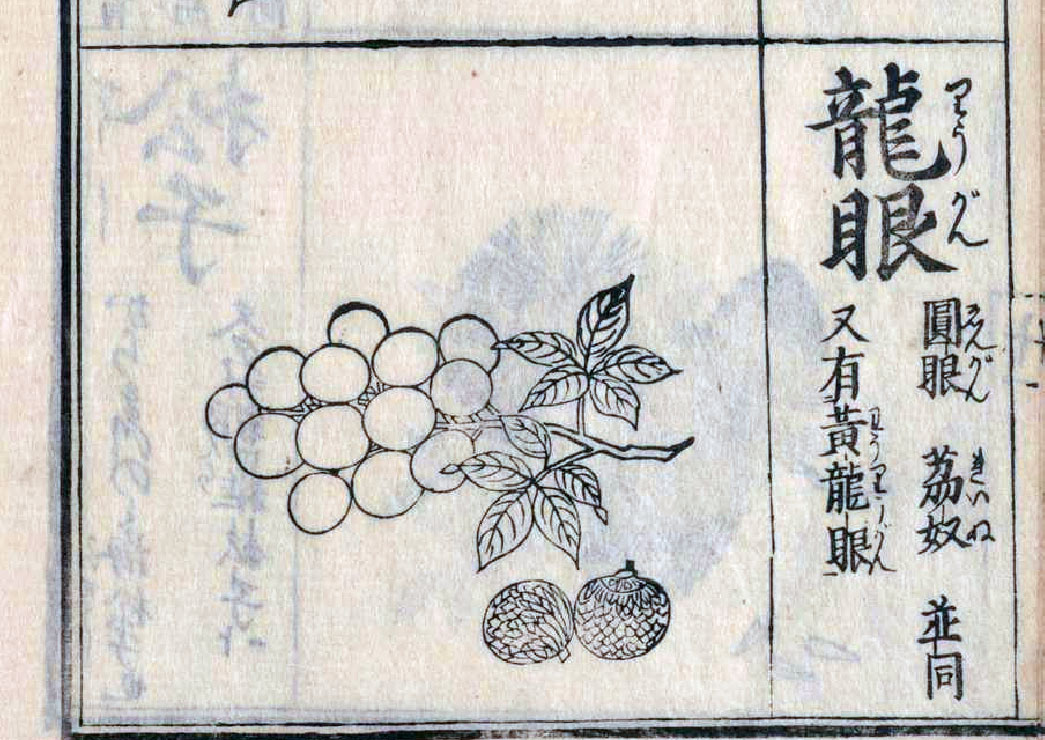 龍眼
りうがん
圓眼 荔奴 並同
ゑんがん れいぬ
又有黃龍眼
わうりうがん